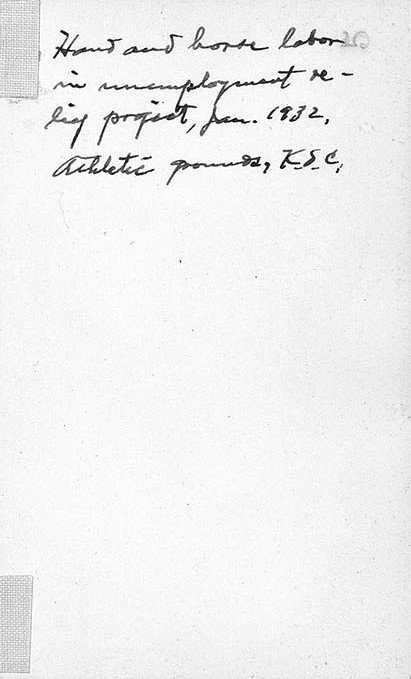 Hand and horse labor
in unemployment re-
lief project, Jan. 1932,
Athletic grounds, K.S.C.,